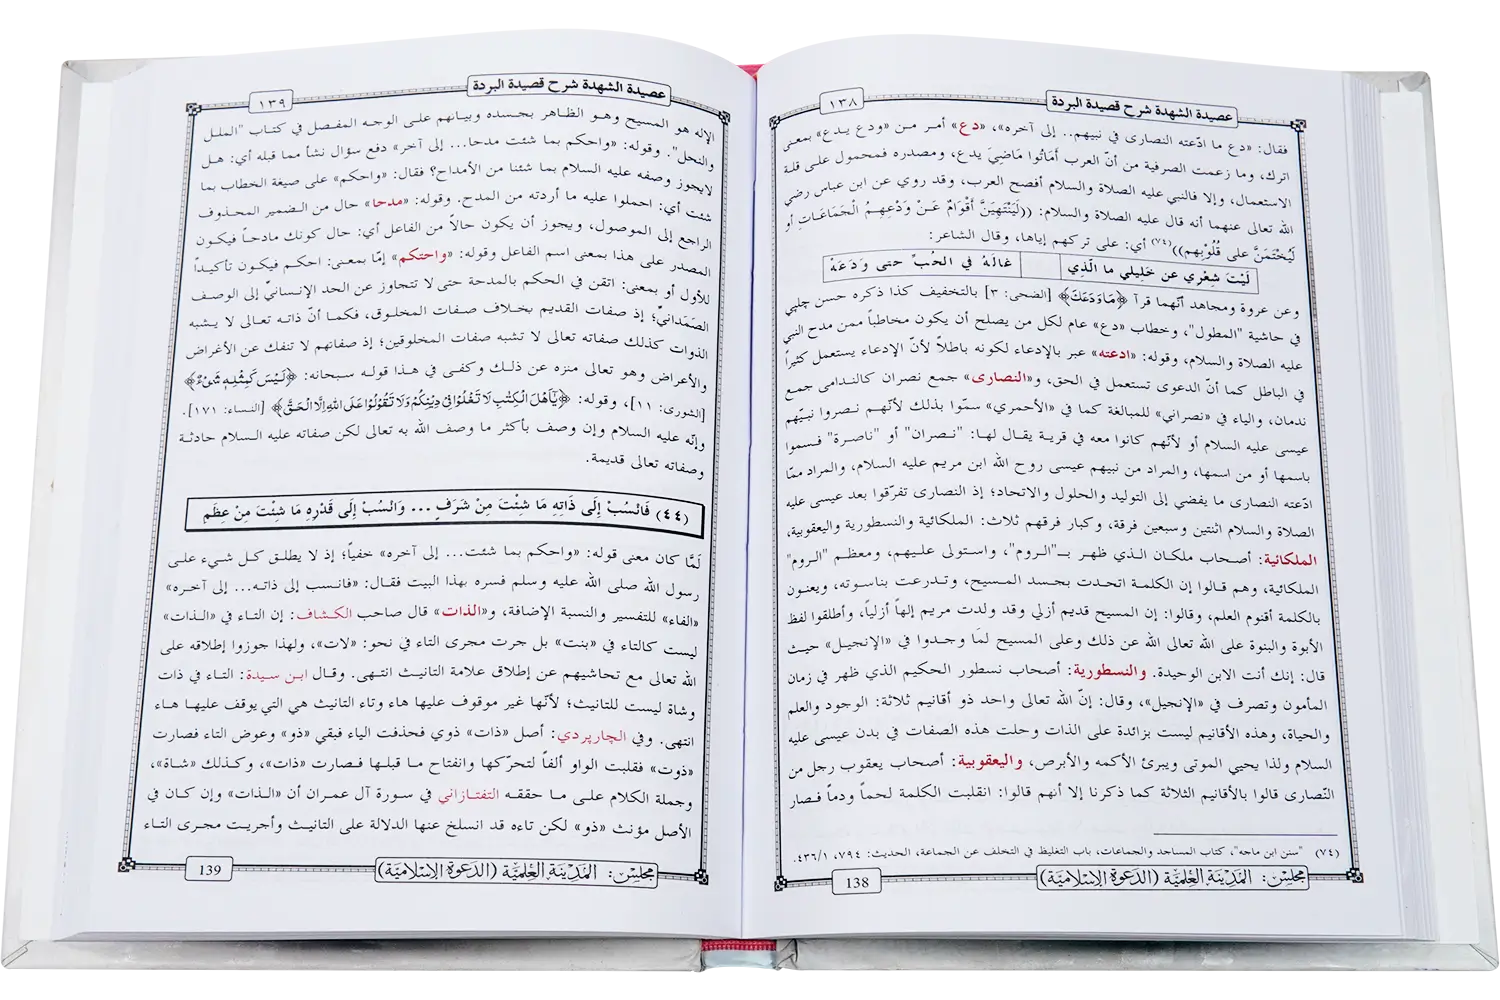 عصيدة الشهدة شرح قصيدة البردة
١٣٨
فقال: «دع ما ادّعته النصارى في نبيهم.. إلى آخره»، «دع» أمر من «ودع يدع» بمعنى
اترك، وما زعمت الصرفية من أنّ العرب أَمَاتُوا مَاضِيَ يدع، ومصدره فمحمول على قلة
الاستعمال، وإلا فالنبي عليه الصلاة والسلام أفصح العرب، وقد روي عن ابن عباس رضي
الله تعالى عنهما أنه قال عليه الصلاة والسلام: ((لَيَنْتَهِيَنَّ أَقْوَامٌ عَنْ وَدْعِهِمُ الْجَمَاعَاتِ أو
لَيُخْتَمَنَّ على قُلُوْبِهم))(٧٤) أي: على تركهم إياها، وقال الشاعر:
لَيْتَ شِعْرِي عن خَلِيلِي ما الَّذِي غَالَهُ في الحُبِّ حتى وَدَعَهْ
وعن عروة ومجاهد أنّهما قرآ ﴿مَاوَدَعَكَ﴾ [الضحى: ٣] بالتخفيف كذا ذكره حسن چلپي
في حاشية "المطول"، وخطاب «دع» عام لكل من يصلح أن يكون مخاطباً ممن مدح النبي
عليه الصلاة والسلام، وقوله: «ادعته» عبر بالإدعاء لكونه باطلاً لأنّ الإدعاء يستعمل كثيراً
في الباطل كما أنّ الدعوى تستعمل في الحق، و«النصارى» جمع نصران كالندامى جمع
ندمان، والياء في «نصراني» للمبالغة كما في «الأحمري» سمّوا بذلك لأنّهم نصروا نبيّهم
عيسى عليه السلام أو لأنّهم كانوا معه في قرية يقال لها: "نصران" أو "ناصرة" فسموا
باسمها أو من اسمها، والمراد من نبيهم عيسى روح الله ابن مريم عليه السلام، والمراد ممّا
ادّعته النصارى ما يفضي إلى التوليد والحلول والاتحاد؛ إذ النصارى تفرّقوا بعد عيسى عليه
الصلاة والسلام اثنتين وسبعين فرقة، وكبار فرقهم ثلاث: الملكائية والنسطورية واليعقوبية،
الملكائية: أصحاب ملكان الذي ظهر بـ"الروم"، واستولى عليهم، ومعظم "الروم"
الملكائية، وهم قالوا إن الكلمة اتحدت بجسد المسيح، وتدرعت بناسوته، ويعنون
بالكلمة أقنوم العلم، وقالوا: إن المسيح قديم أزلي وقد ولدت مريم إلهاً أزلياً، وأطلقوا لفظ
الأبوة والبنوة على الله تعالى الله عن ذلك وعلى المسيح لمَا وجدوا في «الإنجيل» حيث
قال: إنك أنت الابن الوحيدة. والنسطورية: أصحاب نسطور الحكيم الذي ظهر في زمان
المأمون وتصرف في «الإنجيل»، وقال: إنّ الله تعالى واحد ذو أقانيم ثلاثة: الوجود والعلم
والحياة، وهذه الأقانيم ليست بزائدة على الذات وحلت هذه الصفات في بدن عيسى عليه
السلام ولذا يحيي الموتى ويبرئ الأكمه والأبرص، واليعقوبية: أصحاب يعقوب رجل من
النّصارى قالوا بالأقانيم الثلاثة كما ذكرنا إلا أنهم قالوا: انقلبت الكلمة لحماً ودماً فصار
(٧٤) "سنن ابن ماجه"، كتاب المساجد والجماعات، باب التغليظ في التخلف عن الجماعة، الحديث: ٧٩٤، ٤٣٦/١.
مجلس: المدينة العلمية (الدعوة الإسلامية)
138
عصيدة الشهدة شرح قصيدة البردة
١٣٩
الإله هو المسيح وهو الظاهر بجسده وبيانهم على الوجه المفصل في كتاب "الملل
والنحل". وقوله: «واحكم بما شئت مدحا... إلى آخر» دفع سؤال نشأ مما قبله أي: هل
لايجوز وصفه عليه السلام بما شئنا من الأمداح؟ فقال: «واحكم» على صيغة الخطاب بما
شئت أي: احملوا عليه ما أردته من المدح. وقوله: «مدحا» حال من الضمير المحذوف
الراجع إلى الموصول، ويجوز أن يكون حالاً من الفاعل أي: حال كونك مادحاً فيكون
المصدر على هذا بمعنى اسم الفاعل وقوله: «واحتكم» إمّا بمعنى: احكم فيكون تأكيداً
للأول أو بمعنى: اتقن في الحكم بالمدحة حتى لا تتجاوز عن الحد الإنسانيّ إلى الوصف
الصَمَدانيّ؛ إذ صفات القديم بخلاف صفات المخلوق، فكما أنّ ذاته تعالى لا يشبه
الذوات كذلك صفاته تعالى لا تشبه صفات المخلوقين؛ إذ صفاتهم لا تنفك عن الأغراض
والأعراض وهو تعالى منزه عن ذلك وكفى في هذا قوله سبحانه: ﴿لَيْسَ كَمِثْلِهٖ شَىْءٌ﴾
[الشورى: ١١]، وقوله: ﴿يٰۤاَهْلَ الْكِتٰبِ لَا تَغْلُوْا فِىْ دِيْنِكُمْ وَلَا تَقُوْلُوْا عَلَى اللّٰهِ اِلَّا الْحَقَّ﴾ [النساء: ١٧١].
وإنّه عليه السلام وإن وصف بأكثر ما وصف الله به تعالى لكن صفاته عليه السلام حادثة
وصفاته تعالى قديمة.
(٤٤) فَانْسُبْ إِلَى ذَاتِهِ مَا شِئْتَ مِنْ شَرَفٍ ... وَانْسُبْ إِلَى قَدْرِهِ مَا شِئْتَ مِنْ عِظَمِ
لَمَّا كان معنى قوله: «واحكم بما شئت... إلى آخره» خفياً؛ إذ لا يطلق كل شيء على
رسول الله صلى الله عليه وسلم فسره بهذا البيت فقال: «فانسب إلى ذاته... إلى آخره»
«الفاء» للتفسير والنسبة الإضافة، و«الذات» قال صاحب الكشاف: إن التاء في «الذات»
ليست كالتاء في «بنت» بل جرت مجرى التاء في نحو: «لات»، ولهذا جوزوا إطلاقه على
الله تعالى مع تحاشيهم عن إطلاق علامة التانيث انتهى. وقال ابن سيدة: التاء في ذات
وشاة ليست للتانيث؛ لأنّها غير موقوف عليها هاء وتاء التانيث هي التي يوقف عليها هاء
انتهى. وفي الچارپردي: أصل «ذات» ذوي فحذفت الياء فبقي «ذو» وعوض التاء فصارت
«ذوت» فقلبت الواو ألفاً لتحركها وانفتاح ما قبلها فصارت «ذات»، وكذلك «شاة»،
وجملة الكلام على ما حققه التفتازاني في سورة آل عمران أن «الذات» وإن كان في
الأصل مؤنث «ذو» لكن تاءه قد انسلخ عنها الدلالة على التانيث وأجريت مجرى التاء
مجلس: المدينة العلمية (الدعوة الإسلامية)
139